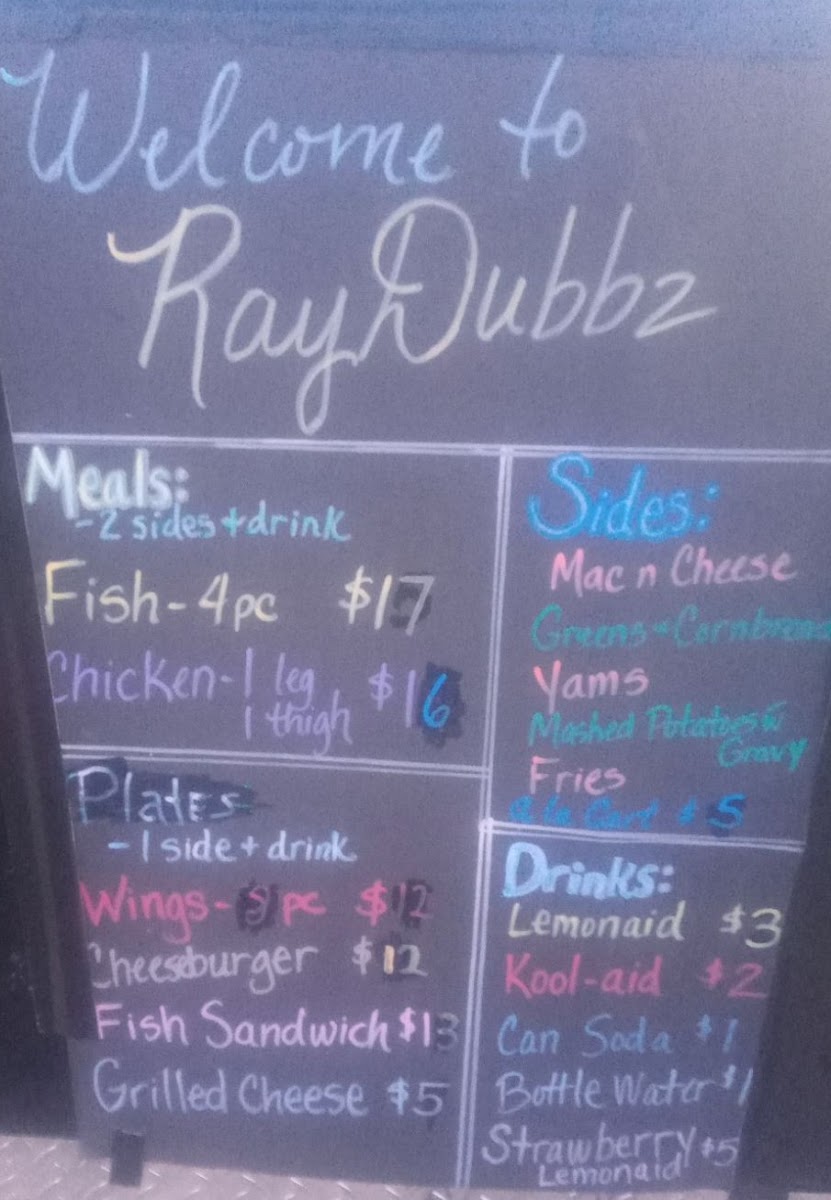 Welcome to
RayDubbz
Meals:
-2 sides + drink
Fish - 4pc $17
Chicken - 1 leg $16
1 thigh
Plates
- 1 side + drink
Wings - pc $12
Cheeseburger $12
Fish Sandwich $13
Grilled Cheese $5
Sides:
Mac n Cheese
Greens Cornbread
Yams
Mashed Potatoes w
Gravy
Fries
a la Cart $5
Drinks:
Lemonaid $3
Kool-aid $2
Can Soda $1
Bottle Water $1
Strawberry $5
Lemonaid